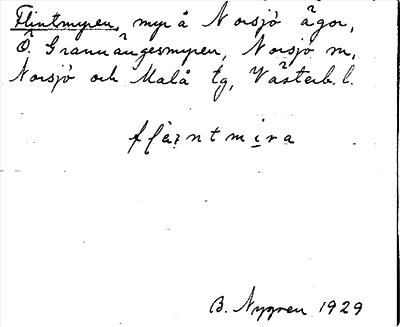 Flintmyren, myr å Norsjö ägor,
Ö. Granvångesmyren, Norsjö sn,
Norsjö och Malå tg, Västerb. l.
B. Nygren 1929